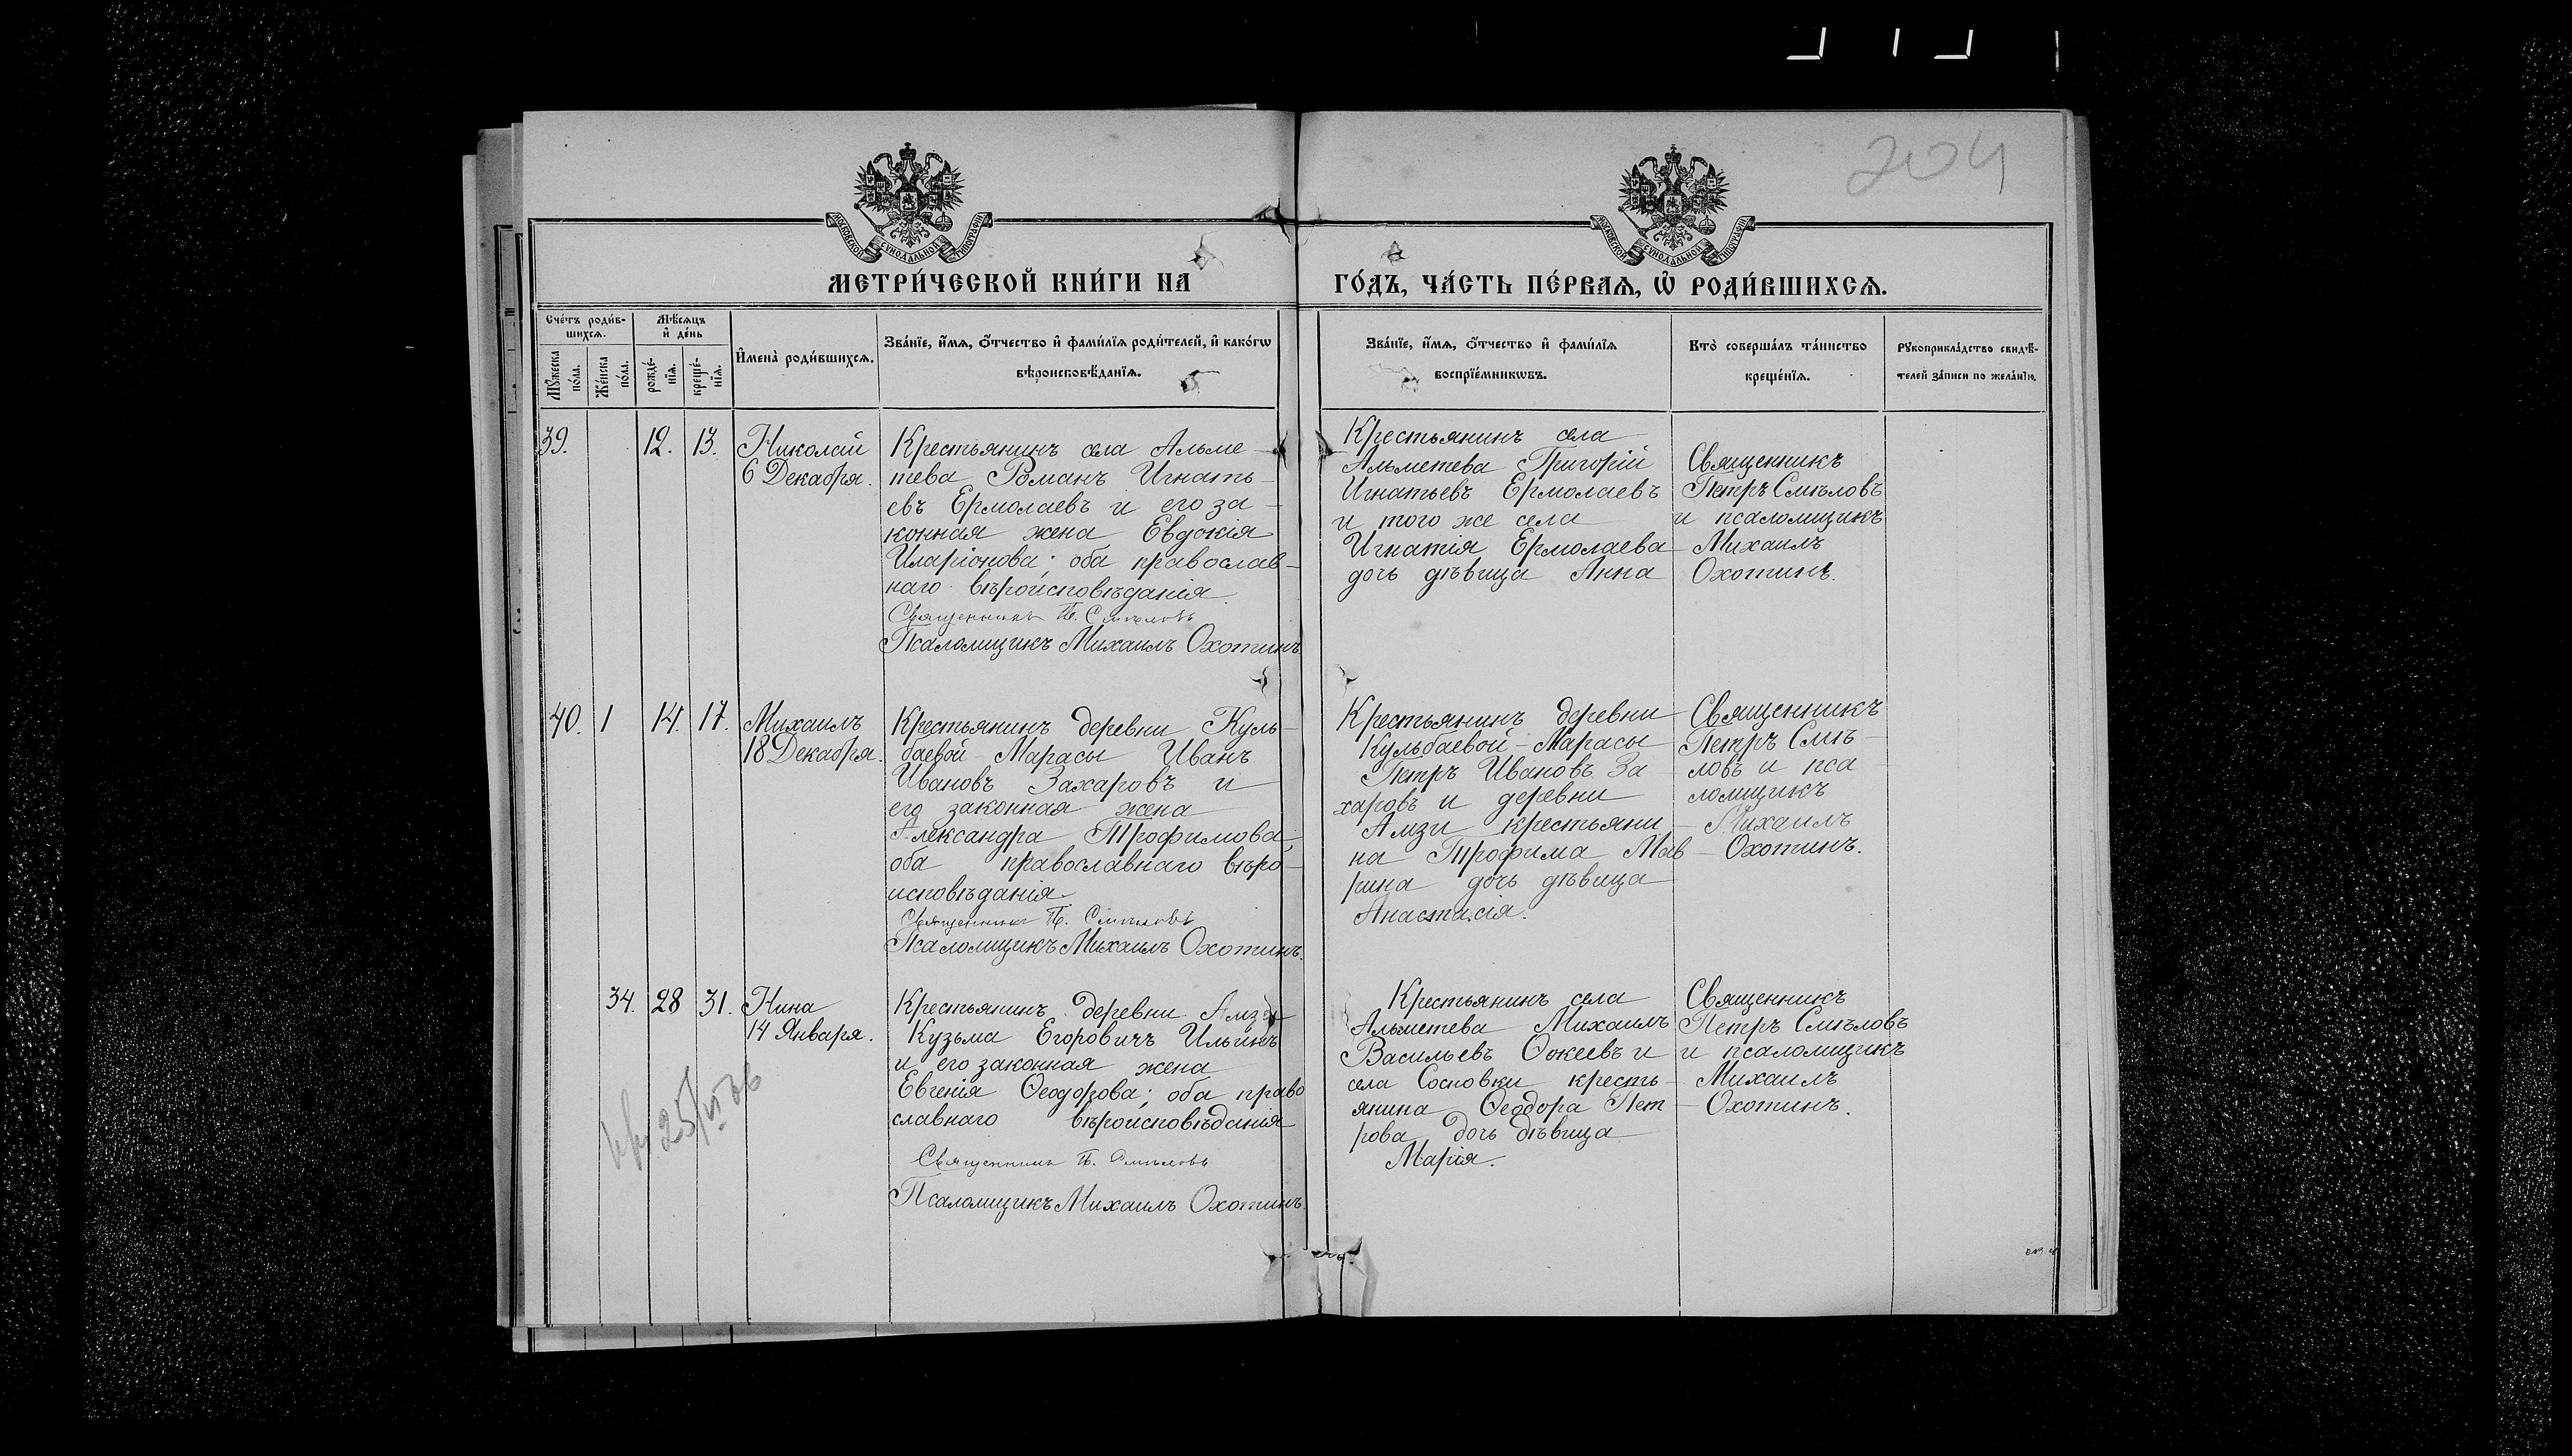 204
МОСКОВСКОЙ СѴНОДАЛЬНОЙ ТИПОГРАФІИ
МОСКОВСКОЙ СѴНОДАЛЬНОЙ ТИПОГРАФІИ
МЕТРИ́ЧЕСКОЙ КНИ́ГИ НА ГО́ДЪ, ЧА́СТЬ ПЕ́РВАѦ, Ѡ҆ РОДИ́ВШИХСѦ.
Сче́тъ роди́в-
шихсѧ.
Мꙋжеска
по́ла.
Же́нска
по́ла.
Мѣ́сѧцъ
и҆ де́нь
рожде́-
нїѧ.
креще́-
нїѧ.
И҆мена̀ роди́вшихсѧ.
Зва́нїе, и҆́мѧ, ѻ҆́тчество и҆ фами́лїѧ роди́телей, и҆ како́гѡ
вѣроисповѣ́данїѧ.
Зва́нїе, и҆́мѧ, ѻ҆́тчество и҆ фами́лїѧ
воспрїе́мникѡвъ.
Кто̀ соверша́лъ та́инство
креще́нїѧ.
Рꙋкоприкла́дство свидѣ́-
телей за́писи по жела́нїю.
39.
12.
13.
Николай
6 Декабря.
Крестьянинъ села Альме-
тева Романъ Игнать-
евъ Ермолаевъ и его за-
конная жена Евдокія
Иларіонова; оба православ-
наго вѣроисповѣданія.
Священникъ П. Смѣловъ
Псаломщикъ Михаилъ Охотинъ
Крестьянинъ села
Альметева Григорій
Игнатьевъ Ермолаевъ
и того же села
Игнатія Ермолаева
дочь дѣвица Анна
Священникъ
Петръ Смѣловъ
и псаломщикъ
Михаилъ
Охотинъ.
40.
1
14.
17.
Михаилъ
18 Декабря.
Крестьянинъ деревни Куль-
баевой-Марасы Иванъ
Ивановъ Захаровъ и
его законная жена
Александра Трофимова;
оба православнаго вѣро-
исповѣданія.
Священникъ П. Смѣловъ
Псаломщикъ Михаилъ Охотинъ.
Крестьянинъ деревни
Кульбаевой-Марасы
Петръ Ивановъ За-
харовъ и деревни
Амзи крестьяни-
на Трофима Мав-
рина дочь дѣвица
Анастасія.
Священникъ
Петръ Смѣ-
ловъ и пса-
ломщикъ
Михаилъ
Охотинъ.
34.
28
31.
Нина
14 Января.
Крестьянинъ деревни Амзи
Кузьма Егоровичъ Ильинъ
и его законная жена
Евгенія Ѳеодорова; оба право
славнаго вѣроисповѣданія
Священникъ П. Смѣловъ
Псаломщикъ Михаилъ Охотинъ.
Крестьянинъ села
Альметева Михаилъ
Васильевъ Ѳокеевъ и
села Сосновки кресть-
янина Ѳеодора Пет-
рова дочь дѣвица
Марія.
Священникъ
Петръ Смѣловъ
и псаломщикъ
Михаилъ
Охотинъ.